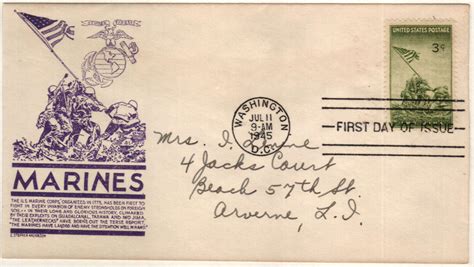 MARINES
THE U.S. MARINE CORPS, ORGANIZED IN 1775, HAS BEEN FIRST TO
FIGHT IN EVERY INVASION OF ENEMY STRONGHOLDS ON FOREIGN
SOIL --- IN THEIR LONG AND GLORIOUS HISTORY, CLIMAXED
BY THEIR EXPLOITS ON GUADALCANAL, TARAWA AND IWO JIMA,
"THE LEATHERNECKS" HAVE BORNE OUT THE TERSE REPORT,
"THE MARINES HAVE LANDED AND HAVE THE SITUATION WELL IN HAND."
C. STEPHEN ANDERSON
WASHINGTON
JUL 11
9-AM
1945
D.C.
UNITED STATES POSTAGE
3¢
FIRST DAY OF ISSUE
Mrs. I.
4 Jacks Court
Beach 57th St.
Arverne, L.I.